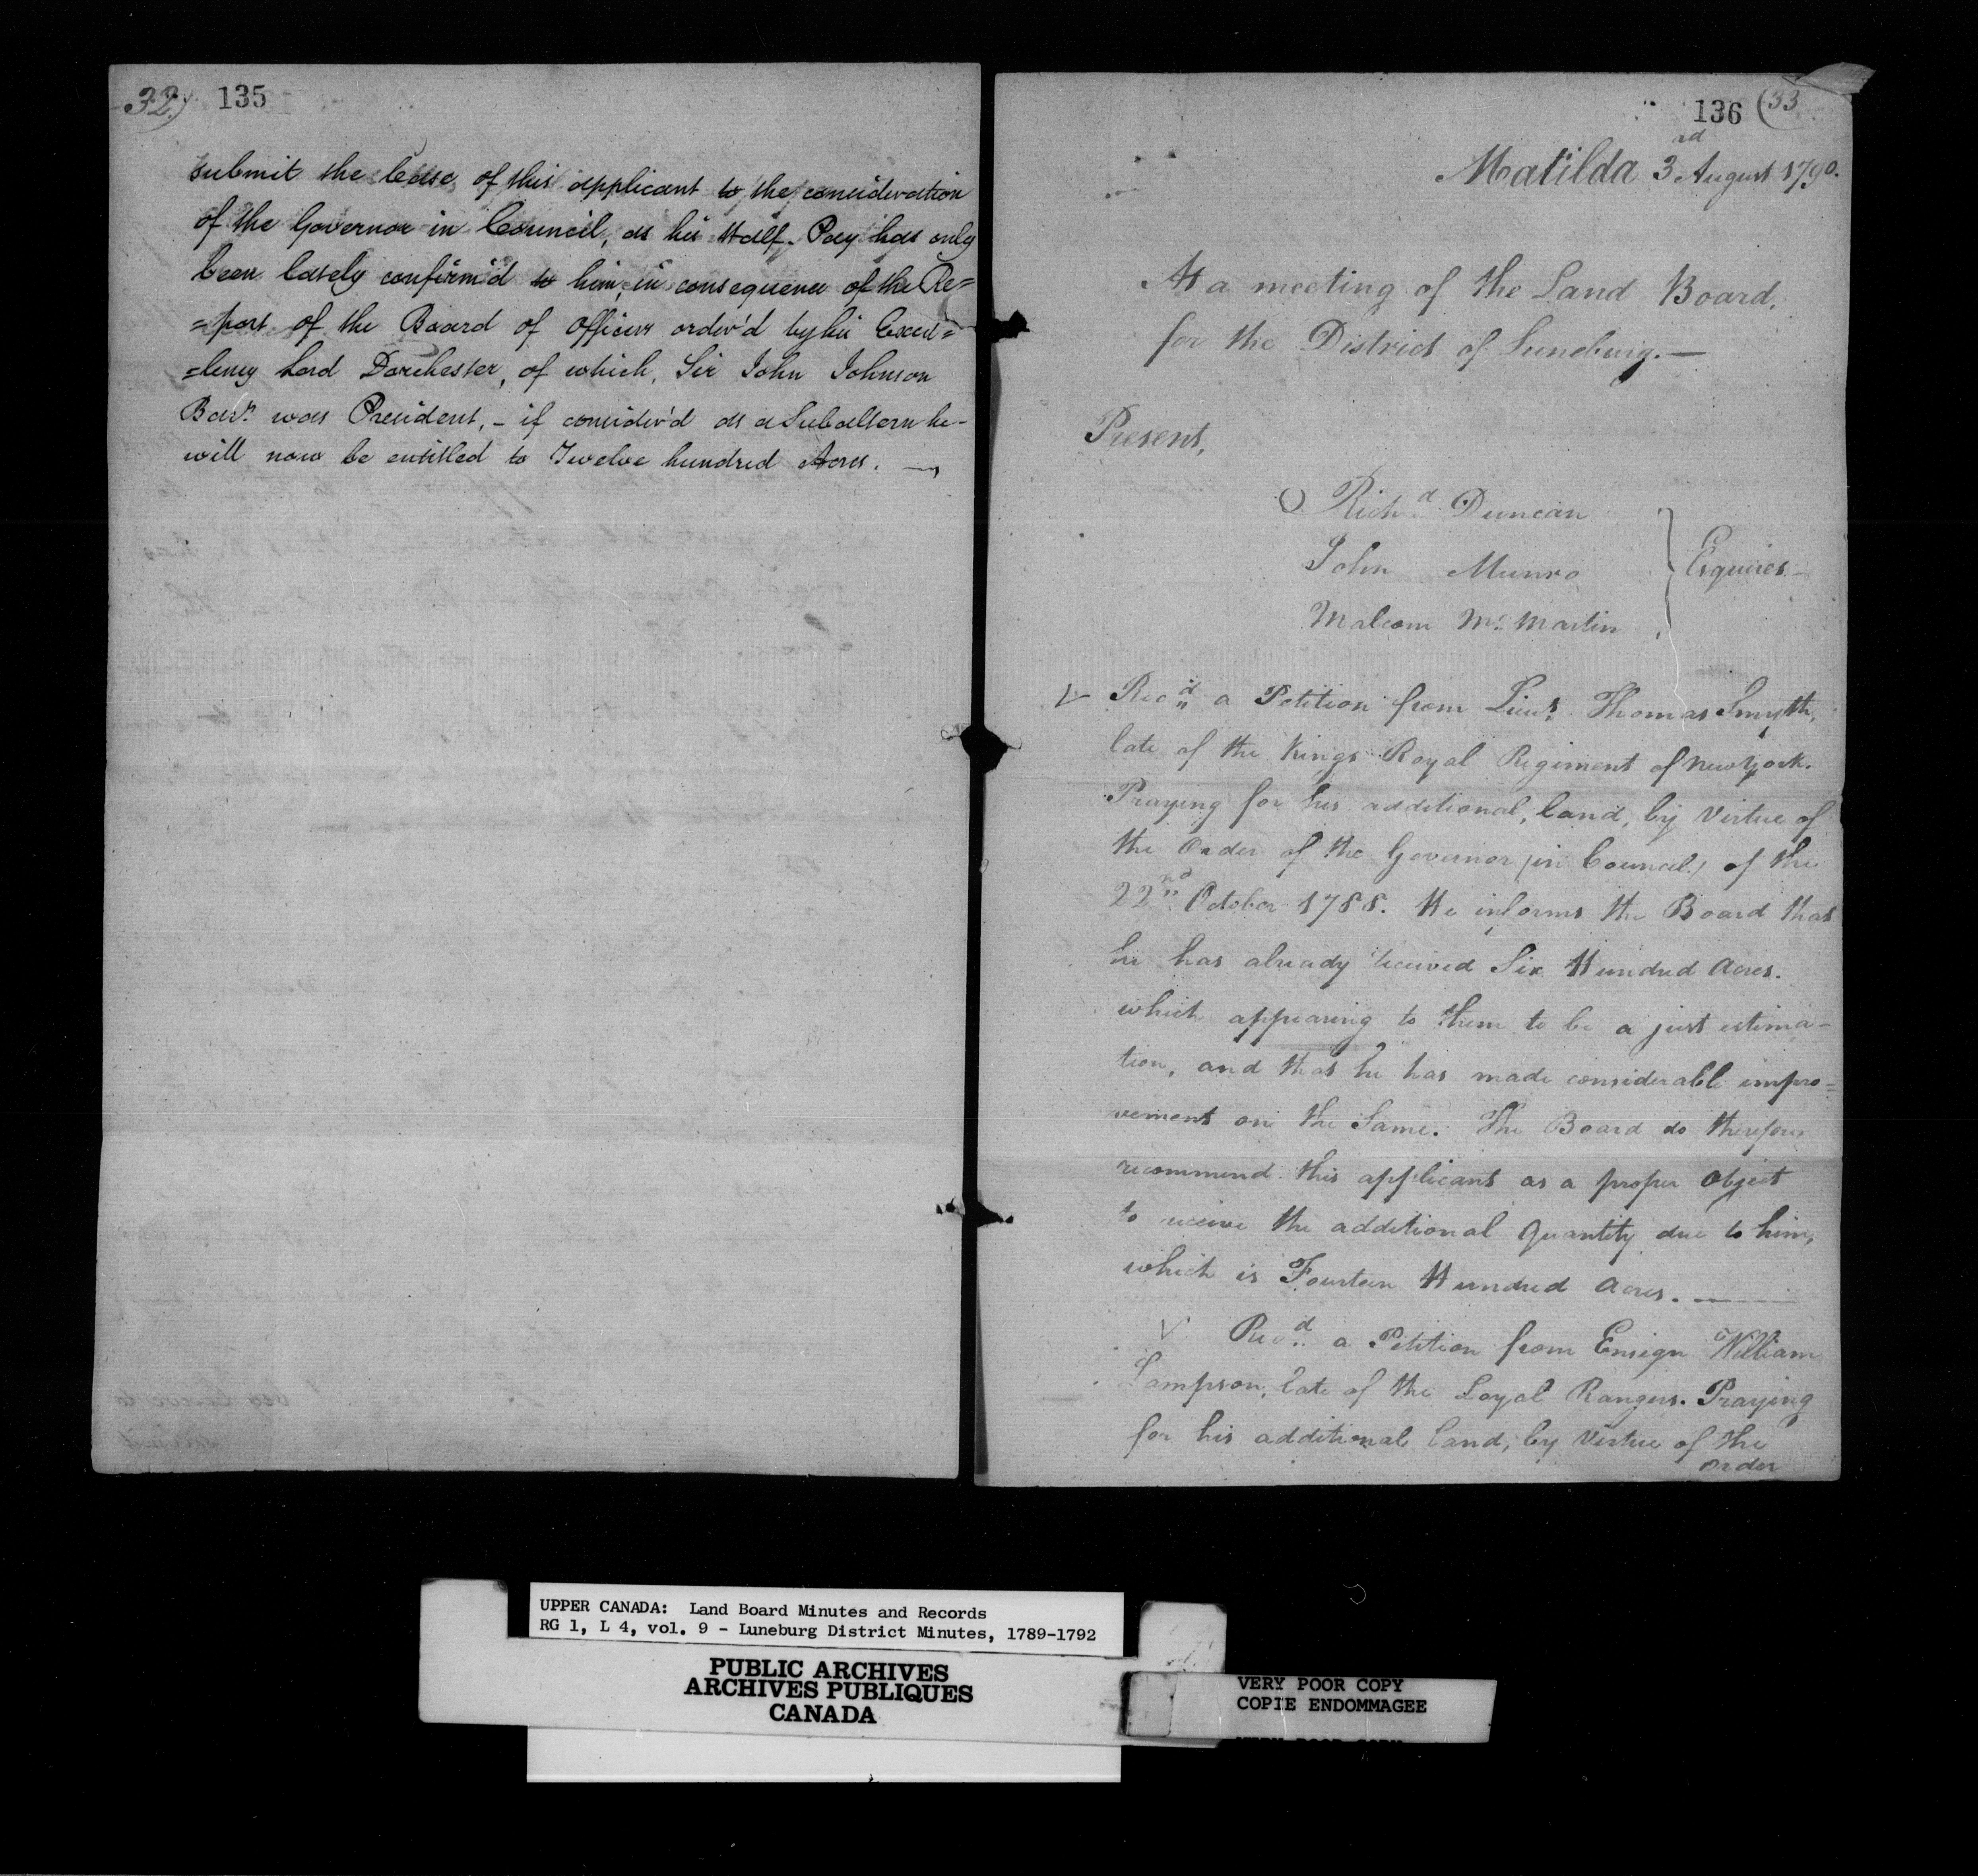 32) 135
submit the Case of this applicant to the consideration
of the Governor in Council, as his Half-Pay has only
been lately confirm'd to him, in consequence of the Re=
=port of the Board of Officers order'd by his Excel=
=lency Lord Dorchester, of which, Sir John Johnson
Bart. was President, - if consider'd as a Subaltern he
will now be entitled to Twelve hundred Acres. —
136 (33
Matilda 3rd August 1790.
At a meeting of the Land Board,
for the District of Luneburg.—
Present,
Richd Duncan
John Munro
Malcom Mc Martin
Esquires—
V Recd a Petition from Lieut. Thomas Smyth,
late of the Kings Royal Regiment of New York.
Praying for his additional, land, by Virtue of
the Order of the Governor (in Council) of the
22nd October 1788. He informs the Board that
he has already received Six Hundred Acres.
which appearing to them to be a just estima-
tion, and that he has made considerable impro=
vement on the Same. The Board do therefore
recommend this applicant as a proper Object
to receive the additional Quantity due to him,
which is Fourteen Hundred Acres. —
V Recd a Petition from Ensign William
Sampson, late of the Loyal Rangers. Praying
for his additional land, by Virtue of the
Order
UPPER CANADA: Land Board Minutes and Records
RG 1, L 4, vol. 9 - Luneburg District Minutes, 1789-1792
PUBLIC ARCHIVES
ARCHIVES PUBLIQUES
CANADA
VERY POOR COPY
COPIE ENDOMMAGEE
VERY POOR COPY